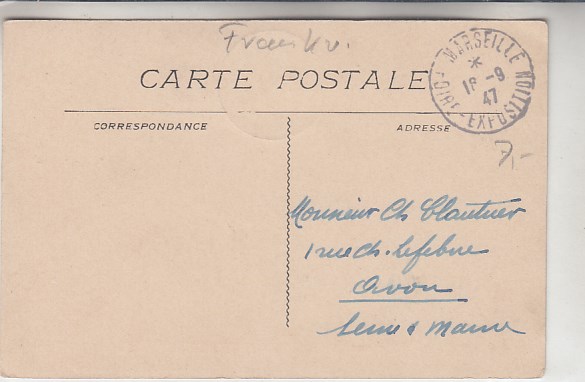 Frankr.
CARTE POSTALE
MARSEILLE
*
18-9
47
FOIRE-EXPOSITION
CORRESPONDANCE
ADRESSE
7,-
Monsieur Ch Clautrier
1 rue Ch. Lefebvre
Avon
Seine & Marne